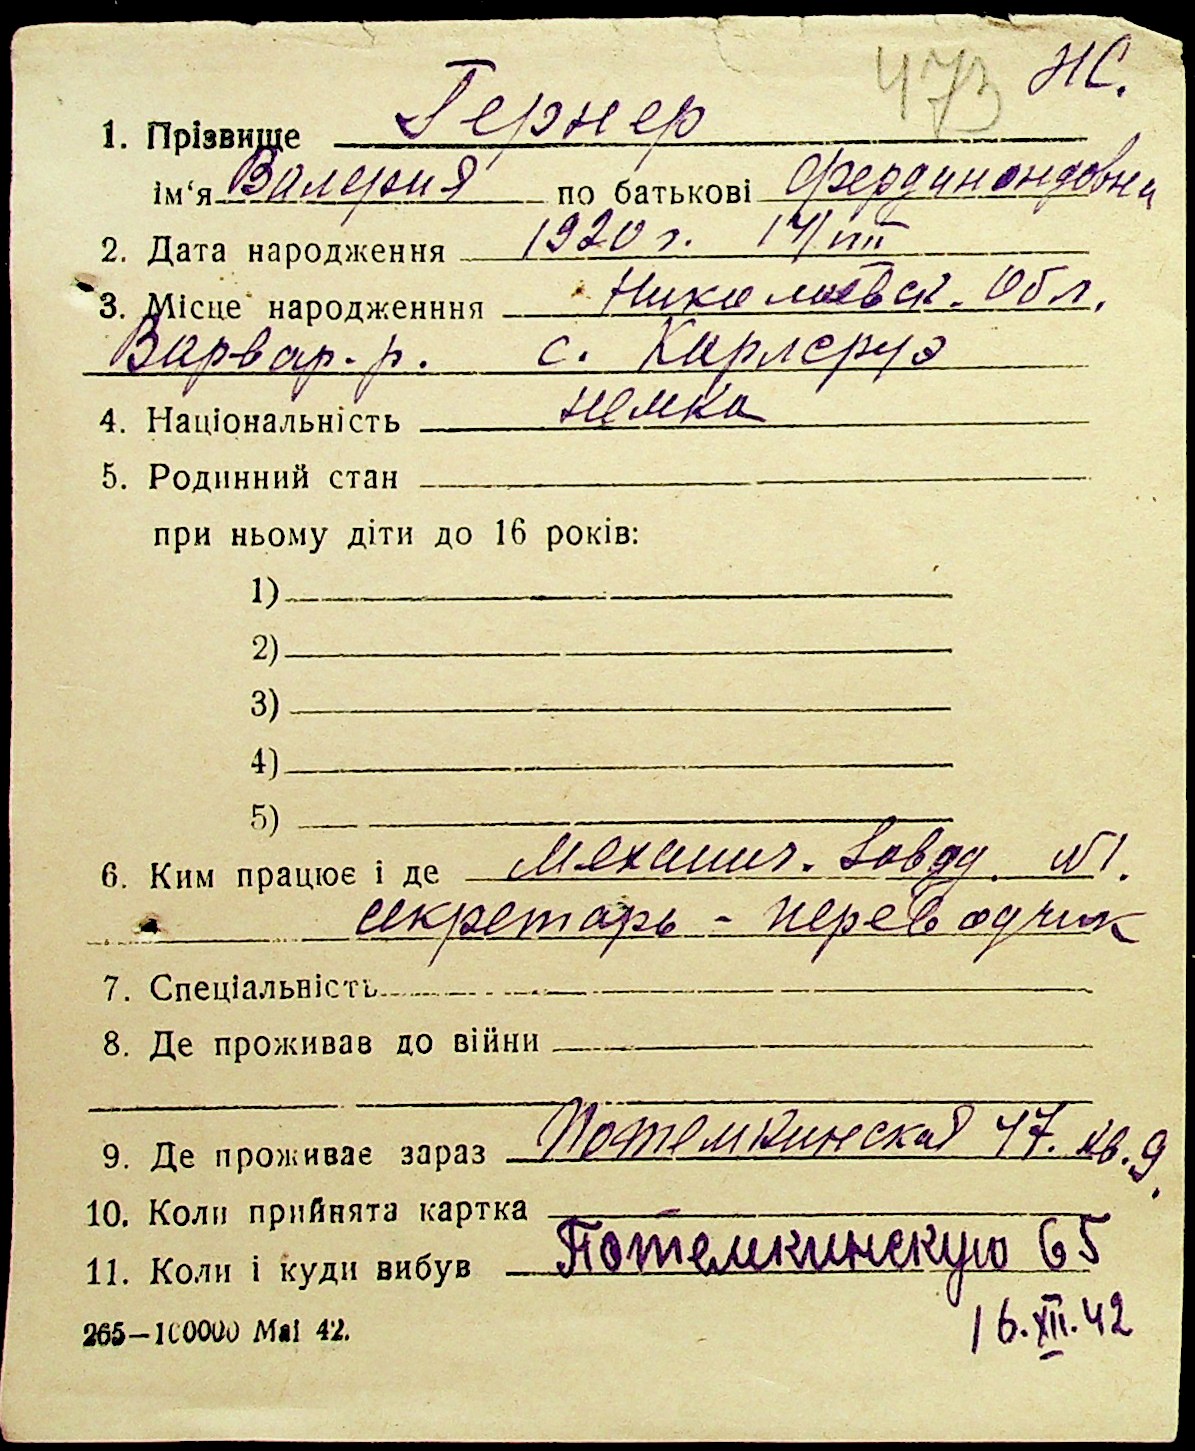 473 НС.
1. Прізвище Гернер
ім'я Валерия по батькові Фердинандовна
2. Дата народження 1920 г. 14/VIII
3. Місце народженння Николаевск. Обл.
Варвар. р. с. Карлсруэ
4. Національність немка
5. Родинний стан
при ньому діти до 16 років:
1)
2)
3)
4)
5)
6. Ким працює і де Механич. Завод. №1.
секретарь - переводчик
7. Спеціальність
8. Де проживав до війни
9. Де проживає зараз Потемкинская 47. кв. 9.
10. Коли прийнята картка
11. Коли і куди вибув Потемкинскую 65
265—100000 Mai 42. 16.XII.42